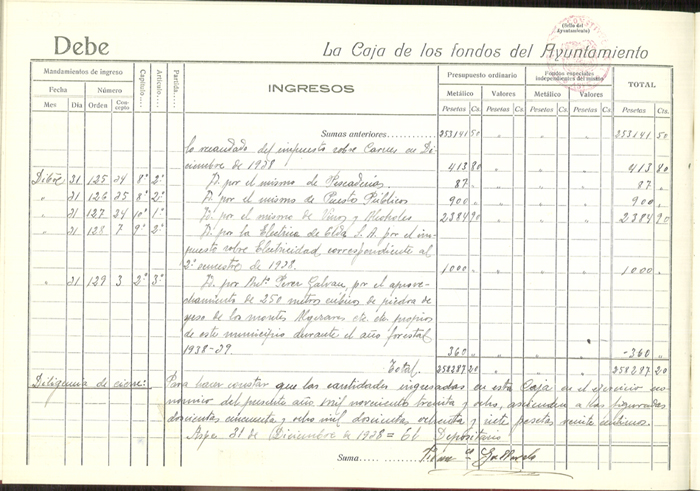 (Sello del Ayuntamiento)
Debe
La Caja de los fondos del Ayuntamiento
Mandamientos de ingreso
Fecha Número
Mes Día Orden Concepto
Capítulo
Artículo
Partida
INGRESOS
Presupuesto ordinario
Metálico Valores
Pesetas Cs. Pesetas Cs.
Fondos especiales independientes del mismo
Metálico Valores
Pesetas Cs. Pesetas Cs.
TOTAL
Pesetas Cts.
Sumas anteriores 253141 50 " " " 253141 50
lo recaudado del impuesto sobre Carnes en Di-
ciembre de 1938 413 80 " " " 413 80
Dibre 31 125 24 8º 2º Id. por el mismo de Pescaderias 87 " " " " 87 "
" 31 126 25 8º 2º Id. por el mismo de Puestos Públicos 900 " " " " 900 "
" 31 127 24 10º 1º Id. por el mismo de Vinos y Alcoholes 2384 90 " " " 2384 90
" 31 128 7 9º 2º Id. por la Electrica de Elda S. A. por el im-
puesto sobre Electricidad, correspondiente al
2º semestre de 1938. 1000 " " " " 1000 "
" 31 129 3 2º 3º Id. por Antº Perez Galvan, por el aprove-
chamiento de 250 metros cubicos de piedra de
yeso de los montes etc. de propios
de este municipio durante el año forestal
1938-39. 360 " " " " 360 "
Total. 258287 20 " " " 258287 20
Diligencia de cierre: Para hacer constar que las cantidades ingresadas en esta Caja en el ejercicio eco-
nomico del presente año mil novecientos treinta y ocho, ascienden a las figuradas
doscientas cincuenta y ocho mil doscientas ochenta y siete pesetas veinte centimos.
Aspe 31 de Diciembre de 1938 = El Depositario
Suma